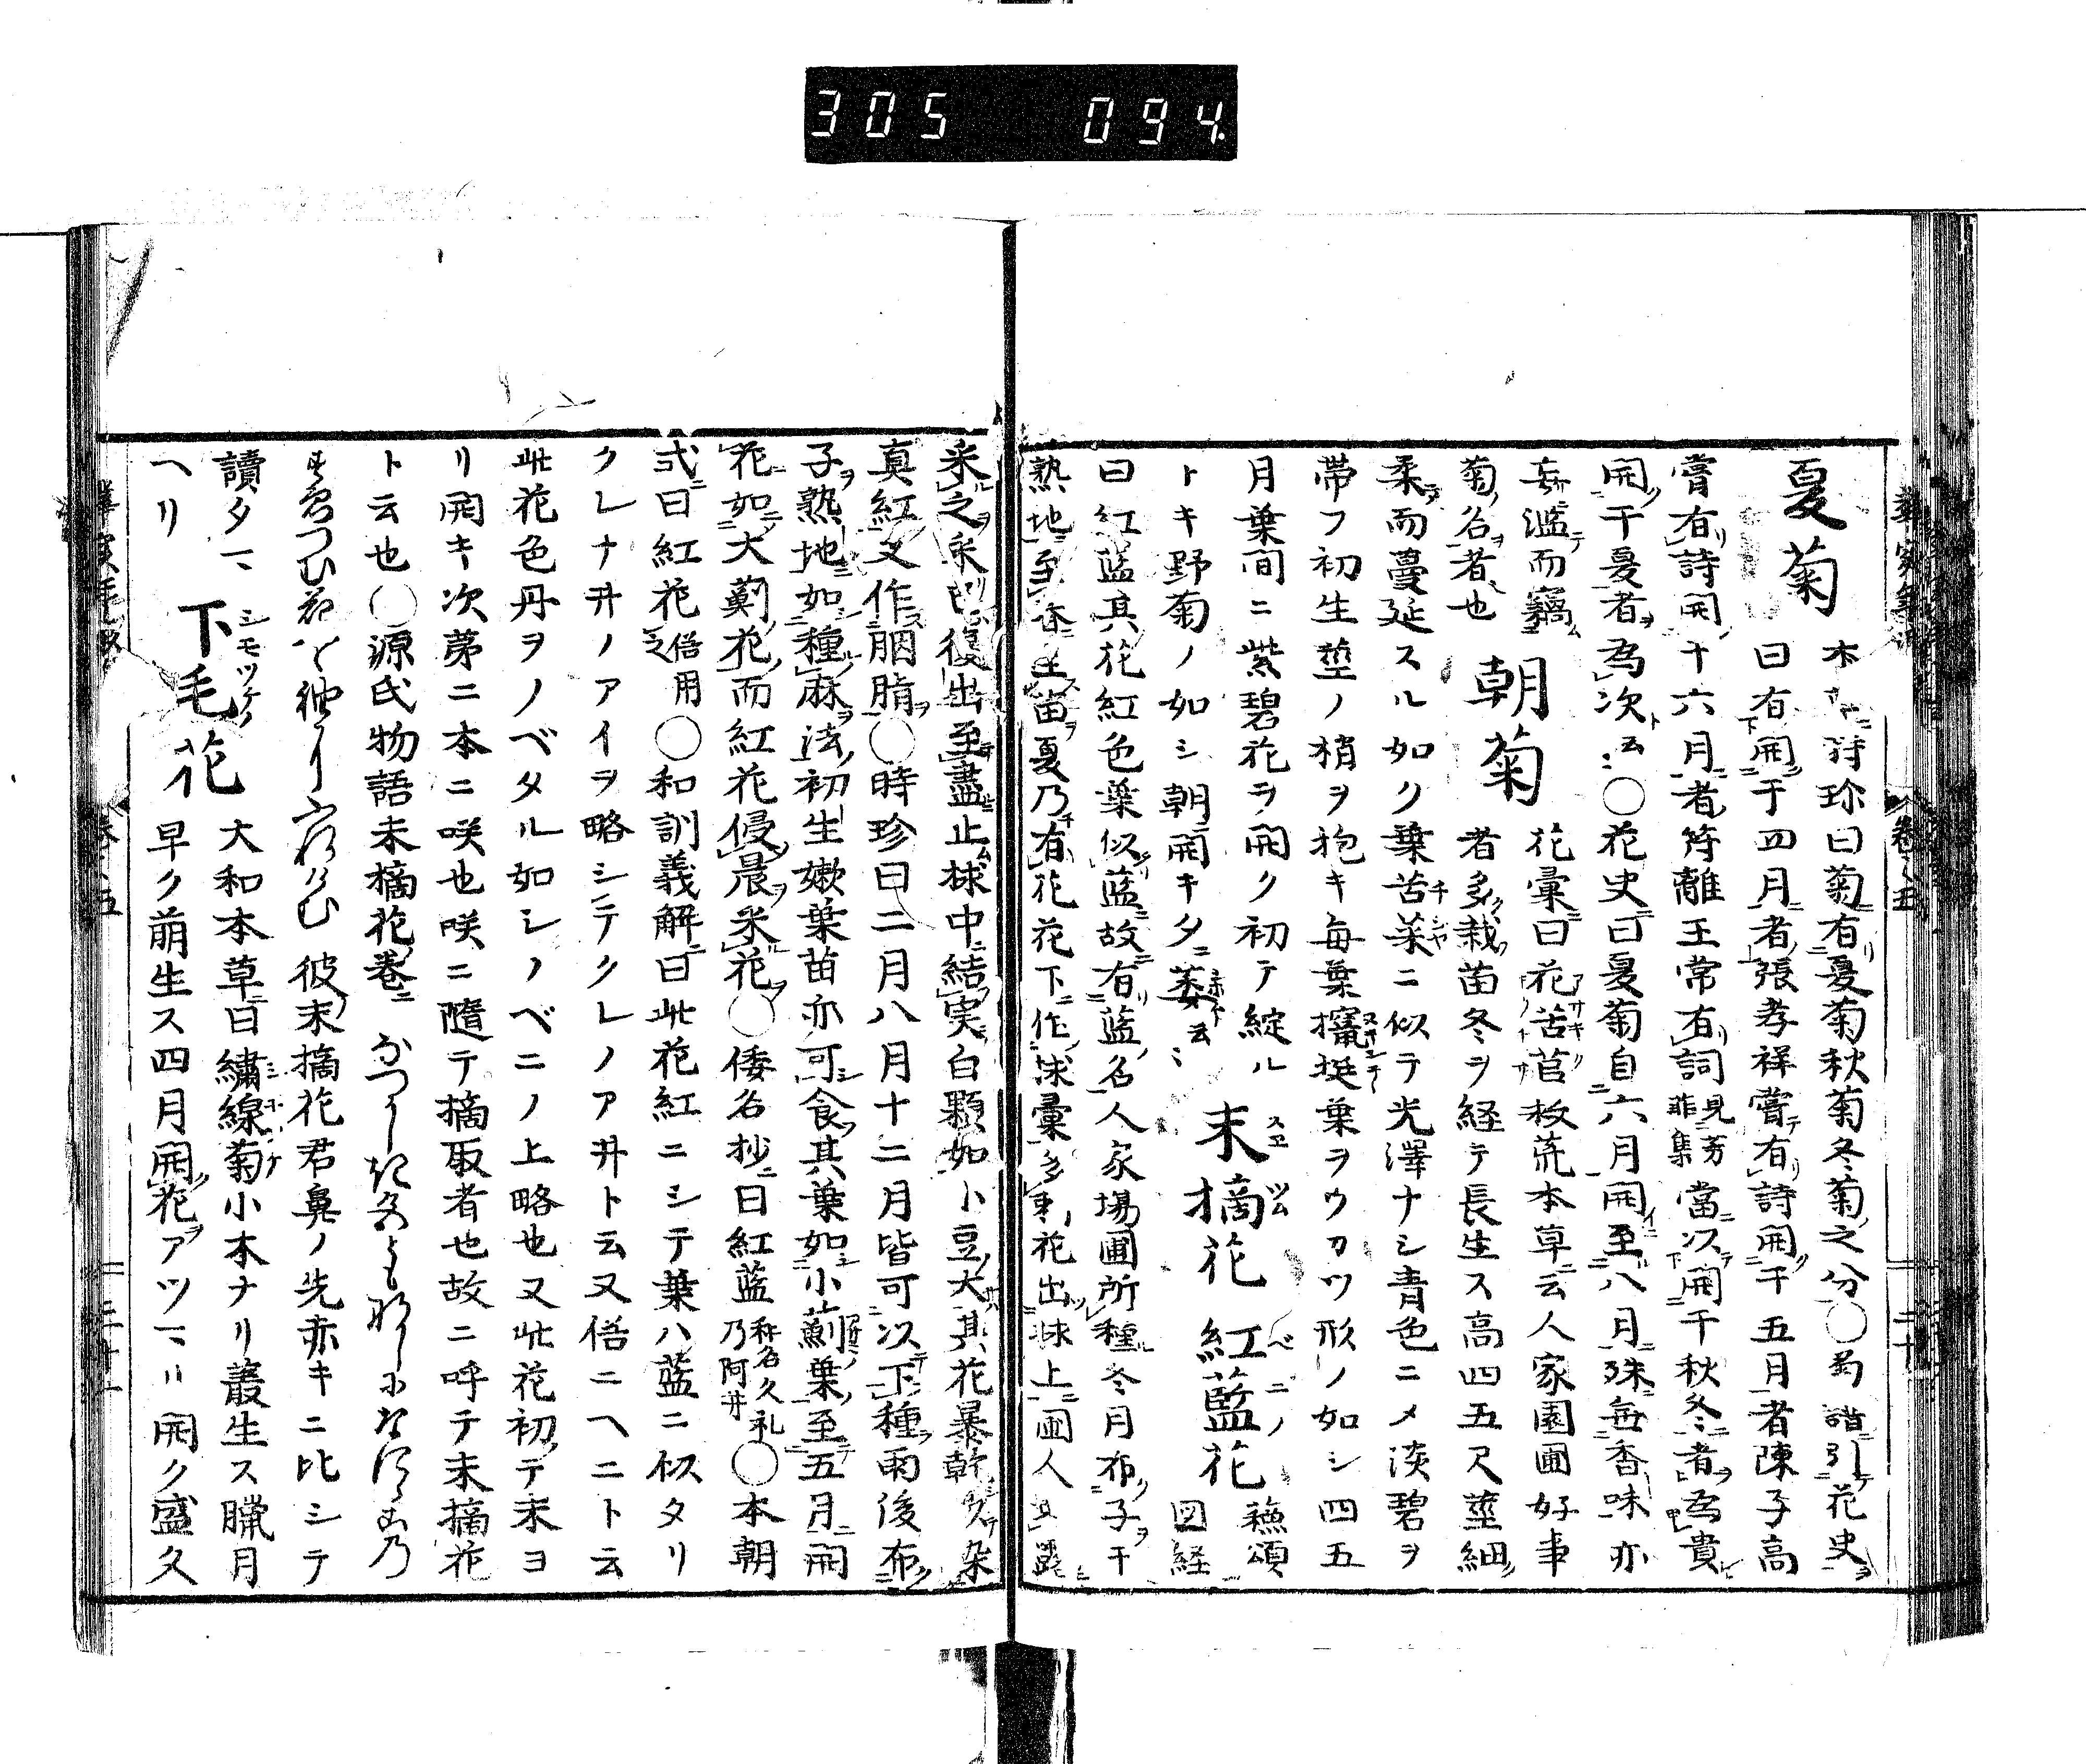 305 094
夏菊
本 時珍曰菊有夏菊秋菊冬菊之分〇 引花史
曰有開于四月者張孝祥嘗有詩開于五月者陳子高
嘗有詩開十六月者符離王常有詞見芳菲集當以開于秋冬者為貴
開于夏者為次云〻〇花史曰夏菊自六月開至八月殊無香味亦
妄濫而竊
菊名者也 朝菊 花彙曰花苦苣 救荒本草云人家園圃好事
者多栽苗冬ヲ経テ長生ス高四五尺莖細
柔而蔓延スル如ク葉苦菜ニ似テ光澤ナシ青色ニメ淡碧ヲ
帶フ初生莖ノ梢ヲ抱キ毎葉攛挺葉ヲウカツ形ノ如シ四五
月葉間ニ紫碧花ヲ開ク初テ綻ル
トキ野菊ノ如シ朝開キタニ萎云〻 末摘花 紅藍花 蘓頌 図経
曰紅藍其花紅色葉似藍故有藍名人家場圃所種冬月布子于
熟地至春生苗夏乃有花花下作𣏌彙多刺花出𣏌上圃人
采之采已復出至盡止𣏌中結実白顆如小豆大其花暴乾 染
真紅又作胭脂〇時珍曰二月八月十二月皆可以下種雨後布
子熟地如種麻法初生嫩葉苗亦可食其葉如小薊葉至五月開
花如大薊花而紅花侵晨采花〇倭名抄曰紅藍 久礼乃阿井 〇本朝
式曰紅花 俗用 〇和訓義解曰此花紅ニシテ葉ハ藍ニ似タリ
クレナ井ノアイヲ略シテクレノア井ト云又俗ニヘニト云
此花色丹ヲノベタル如シノベニノ上略也又此花初テ末ヨ
リ開キ次第ニ本ニ咲也咲ニ隨テ摘取者也故ニ呼テ末摘花
ト云也〇源氏物語末摘花巻ニ なつかしき色ともなしに何にこの
すゑつむ花を袖にふれけむ 彼末摘花君鼻ノ先赤キニ比シテ
讀タマ
ヘリ 下毛花 シモツケノ 大和本草曰繡線菊小木ナリ叢生ス臘月
早ク萠生ス四月開花ヲアツマリ開ク盛久